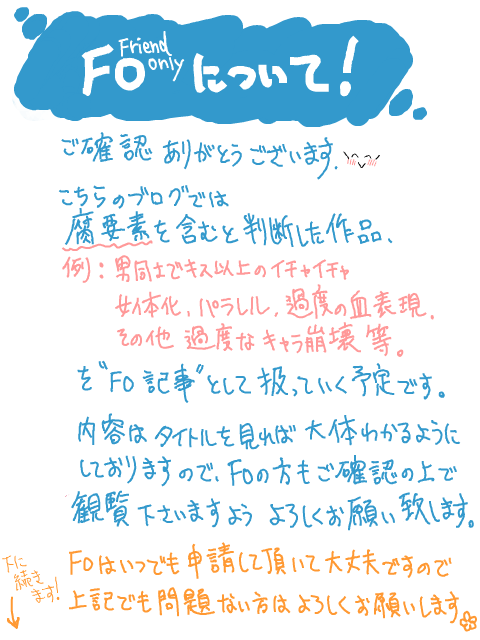 FO Friend only について!
ご確認ありがとうございます。
こちらのブログでは
腐要素を含むと判断した作品、
例：男同士でキス以上のイチャイチャ
女体化、パラレル、過度の血表現、
その他 過度なキャラ崩壊等。
を"FO記事"として扱っていく予定です。
内容はタイトルを見れば大体わかるように
しておりますので、FOの方もご確認の上で
観覧下さいますよう よろしくお願い致します。
FOはいつでも申請して頂いて大丈夫ですので
上記でも問題ない方はよろしくお願いします
下に
続き
ます!